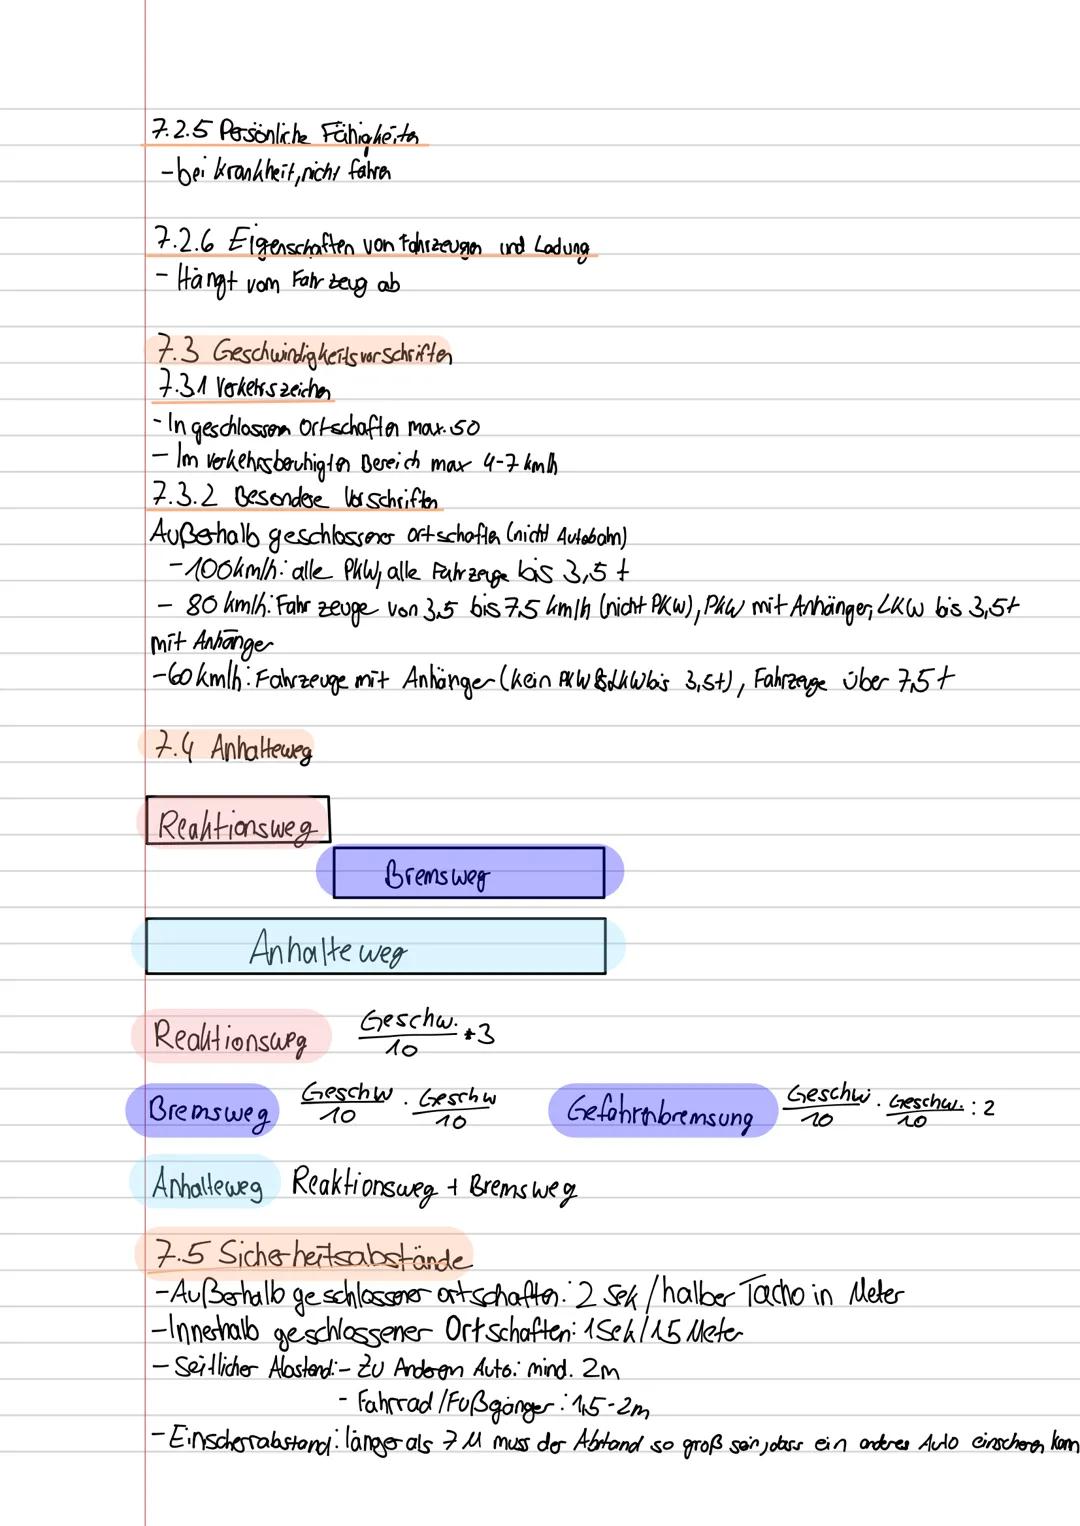 7.2.5 Persönliche Fähigkeiten
- bei Krankheit, nicht fahren
7.2.6 Eigenschaften von Fahrzeugen und Ladung
- Hängt vom Fahrzeug ab
7.3 Geschwindigkeitsvorschriften
7.3.1 Verkehrszeichen
- In geschlossen Ortschaften max. 50
- Im verkehrsberuhigten Bereich max 4-7 km/h
7.3.2 Besondere Vorschriften
Außerhalb geschlossener Ortschaften (nicht Autobahn)
- 100km/h: alle PKW, alle Fahrzeuge bis 3,5 t
- 80 km/h: Fahrzeuge von 3,5 bis 7,5 km/h (nicht PKW), PKW mit Anhänger, LKW bis 3,5t
mit Anhänger
- 60 km/h: Fahrzeuge mit Anhänger (kein PKW & LKW bis 3,5t), Fahrzeuge über 7,5 t
7.4 Anhalteweg
Reaktionsweg
Bremsweg
Anhalteweg
Reaktionsweg Geschw./10 * 3
Bremsweg Geschw/10 · Geschw/10 Gefahrenbremsung Geschw./10 · Geschw./10 : 2
Anhalteweg Reaktionsweg + Bremsweg
7.5 Sicherheitsabstände
- Außerhalb geschlossener ortschaften: 2 Sek / halber Tacho in Meter
- Innerhalb geschlossener Ortschaften: 1 Sek / 15 Meter
- Seitlicher Abstand: - Zu Anderen Auto: mind. 2m
- Fahrrad / Fußgänger: 1,5-2m
- Einscherabstand: länger als 7 M muss der Abstand so groß sein, dass ein anderes Auto einscheren kann